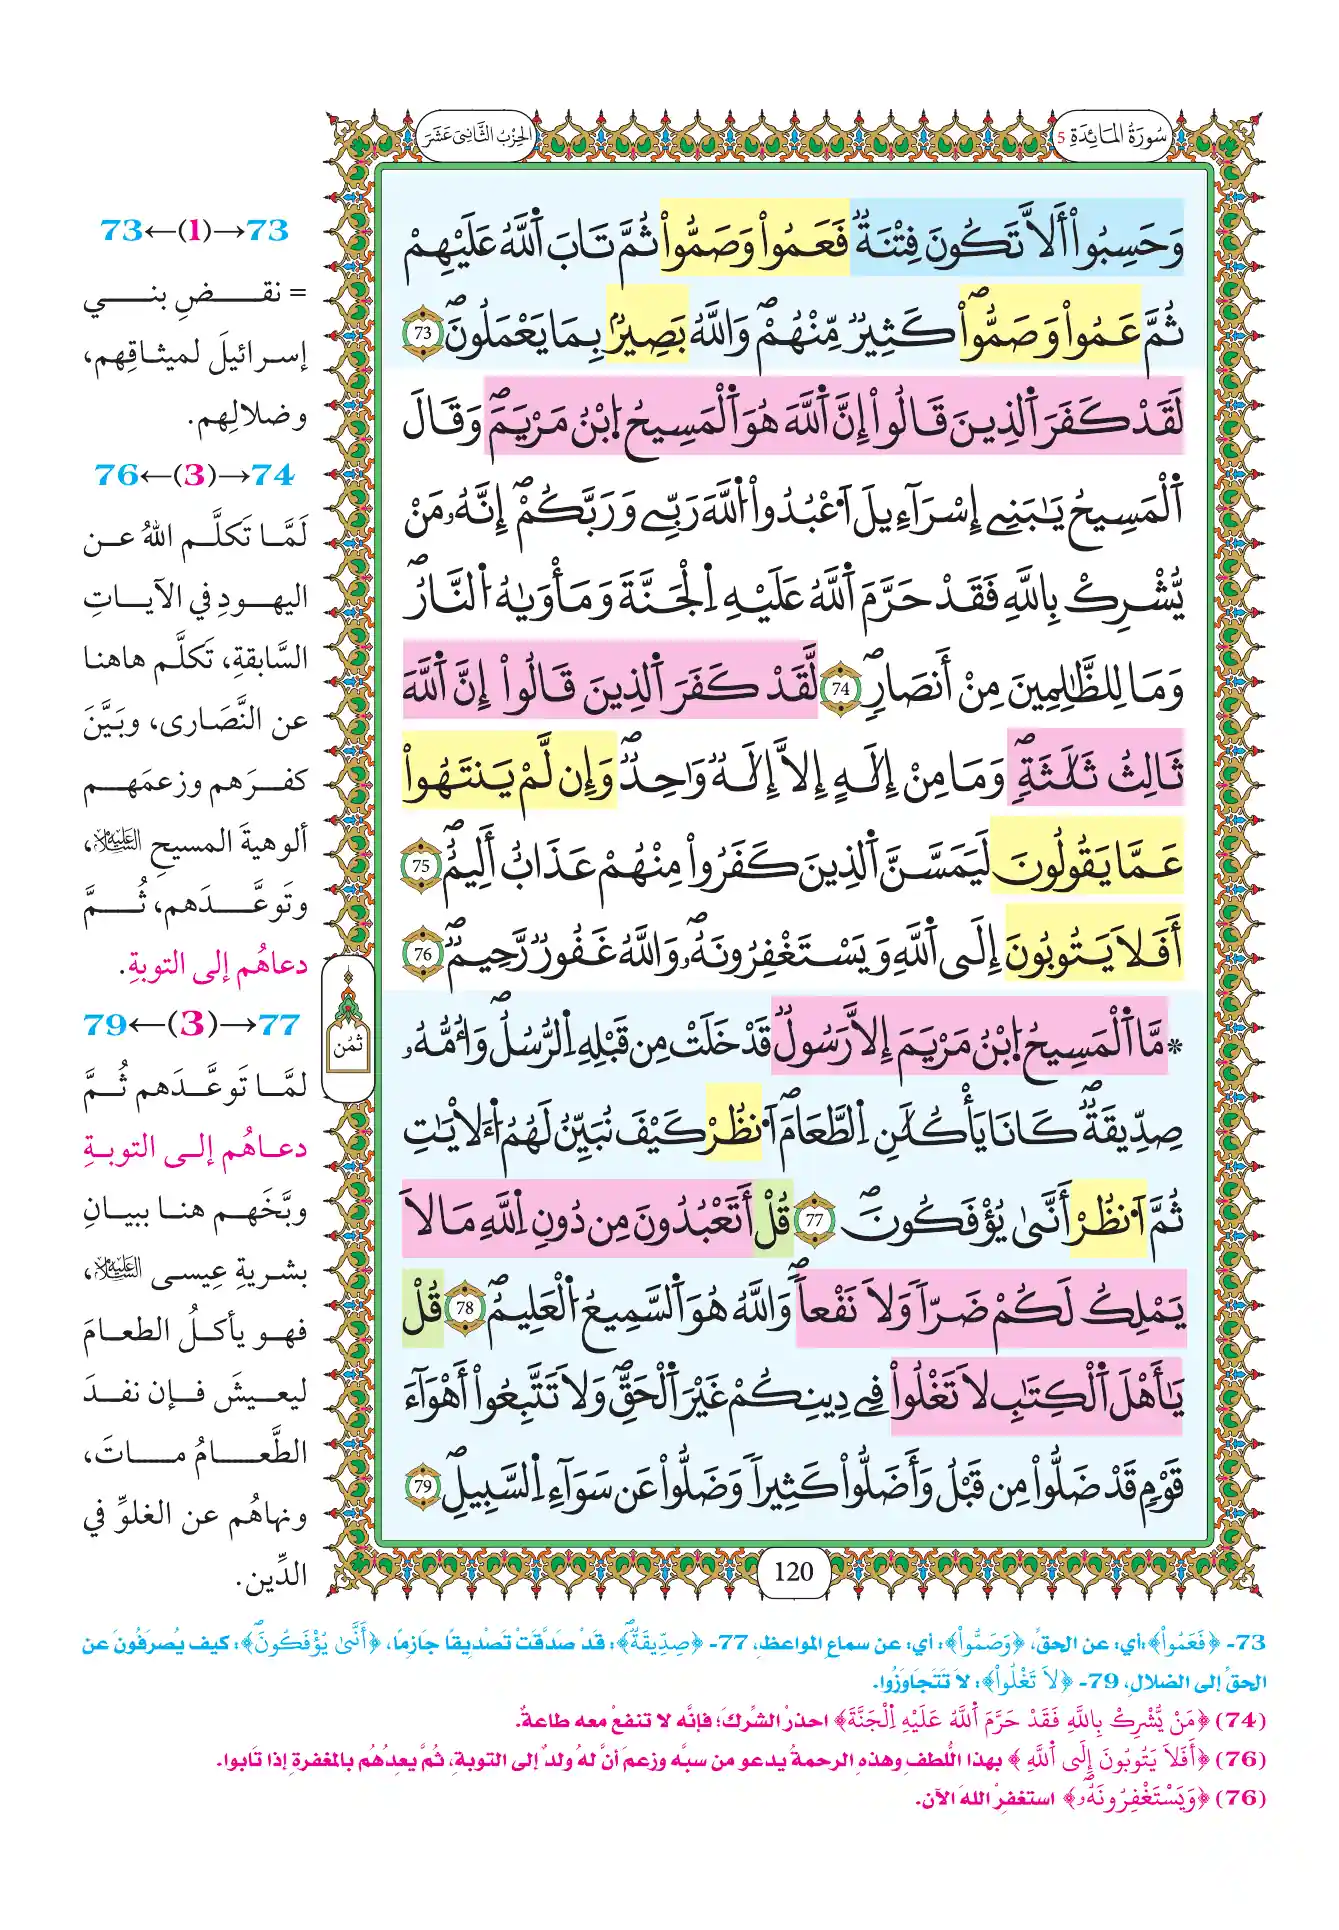 سُورَةُ المَائِدَةِ 5
الحِزْبُ الثَّانِي عَشَرَ
وَحَسِبُوٓاْ أَلَّا تَكُونَ فِتْنَةٞ فَعَمُواْ وَصَمُّواْ ثُمَّ تَابَ اَ۬للَّهُ عَلَيْهِمْ
ثُمَّ عَمُواْ وَصَمُّواْۖ كَثِيرٞ مِّنْهُمْۖ وَاللَّهُ بَصِيرُۢ بِمَا يَعْمَلُونَۖ 73
لَقَدْ كَفَرَ اَ۬لذِينَ قَالُوٓاْ إِنَّ اَ۬للَّهَ هُوَ اَ۬لْمَسِيحُ اُ۪بْنُ مَرْيَمَۖ وَقَالَ
اَ۬لْمَسِيحُ يَٰبَنِےٓ إِسْرَآءِيلَ اَ۟عْبُدُواْ اُ۬للَّهَ رَبِّے وَرَبَّكُمْۖ إِنَّهُۥ مَنْ
يُّشْرِكْ بِاللَّهِ فَقَدْ حَرَّمَ اَ۬للَّهُ عَلَيْهِ اِ۬لْجَنَّةَ وَمَأْوَيٰهُ اُ۬لنَّارُۖ
وَمَا لِلظَّٰلِمِينَ مِنْ أَنصَارٖۖ 74 لَّقَدْ كَفَرَ اَ۬لذِينَ قَالُوٓاْ إِنَّ اَ۬للَّهَ
ثَالِثُ ثَلَٰثَةٖۖ وَمَا مِنْ إِلَٰهٍ إِلَّآ إِلَٰهٞ وَٰحِدٞۖ وَإِن لَّمْ يَنتَهُواْ
عَمَّا يَقُولُونَ لَيَمَسَّنَّ اَ۬لذِينَ كَفَرُواْ مِنْهُمْ عَذَابٌ أَلِيمٌۖ 75
أَفَلَا يَتُوبُونَ إِلَى اَ۬للَّهِ وَيَسْتَغْفِرُونَهُۥۖ وَاللَّهُ غَفُورٞ رَّحِيمٞۖ 76
* مَّا اَ۬لْمَسِيحُ اُ۪بْنُ مَرْيَمَ إِلَّا رَسُولٞ قَدْ خَلَتْ مِن قَبْلِهِ اِ۬لرُّسُلُۖ وَأُمُّهُۥ
صِدِّيقَةٞۖ كَانَا يَأْكُلَٰنِ اِ۬لطَّعَامَۖ اَ۟نظُرْ كَيْفَ نُبَيِّنُ لَهُمُ اُ۬لْأٓيَٰتِ
ثُمَّ اَ۟نظُرْ أَنَّىٰ يُؤْفَكُونَۖ 77 قُلْ أَتَعْبُدُونَ مِن دُونِ اِ۬للَّهِ مَا لَا
يَمْلِكُ لَكُمْ ضَرّاٗ وَلَا نَفْعاٗۖ وَاللَّهُ هُوَ اَ۬لسَّمِيعُ اُ۬لْعَلِيمُۖ 78 قُلْ
يَٰٓأَهْلَ اَ۬لْكِتَٰبِ لَا تَغْلُواْ فِے دِينِكُمْ غَيْرَ اَ۬لْحَقِّۖ وَلَا تَتَّبِعُوٓاْ أَهْوَآءَ
قَوْمٖ قَدْ ضَلُّواْ مِن قَبْلُ وَأَضَلُّواْ كَثِيراٗ وَضَلُّواْ عَن سَوَآءِ اِ۬لسَّبِيلِۖ 79
120
ثُمُن
73←(1)→73
= نقضِ بني
إسرائيلَ لميثاقِهم،
وضلالِهم.
76←(3)→74
لَمَّا تَكلَّم اللهُ عن
اليهودِ في الآياتِ
السَّابقةِ، تَكلَّم هاهنا
عن النَّصَارى، وبَيَّنَ
كفرَهم وزعمَهم
ألوهيةَ المسيحِ عليه السلام،
وتَوعَّدَهم، ثُمَّ
دعاهُم إلى التوبةِ.
79←(3)→77
لمَّا تَوعَّدَهم ثُمَّ
دعاهُم إلى التوبةِ
وبَّخَهم هنا ببيانِ
بشريةِ عِيسى عليه السلام،
فهو يأكلُ الطعامَ
ليعيشَ فإن نفدَ
الطَّعامُ ماتَ،
ونهاهُم عن الغلوِّ في
الدِّين.
73- ﴿فَعَمُواْ﴾: أي: عن الحقِّ، ﴿وَصَمُّواْۖ﴾: أي: عن سماعِ المواعظِ، 77- ﴿صِدِّيقَةٞۖ﴾: قَدْ صَدَّقَتْ تَصْدِيقًا جَازِمًا، ﴿أَنَّىٰ يُؤْفَكُونَۖ﴾: كيف يُصرَفُونَ عن
الحقِّ إلى الضلالِ، 79- ﴿لَا تَغْلُواْ﴾: لَا تَتَجَاوَزُوا.
(74) ﴿مَنْ يُّشْرِكْ بِاللَّهِ فَقَدْ حَرَّمَ اَ۬للَّهُ عَلَيْهِ اِ۬لْجَنَّةَ﴾ احذرْ الشِّركَ؛ فإنَّه لا تنفعْ معه طاعةٌ.
(76) ﴿أَفَلَا يَتُوبُونَ إِلَى اَ۬للَّهِ﴾ بهذا اللُّطفِ وهذه الرحمةُ يدعو من سبَّه وزعمَ أنَّ لهُ ولدٌ إلى التوبةِ، ثُمَّ يعدُهُم بالمغفرةِ إذا تَابوا.
(76) ﴿وَيَسْتَغْفِرُونَهُۥۖ﴾ استغفرْ اللهَ الآن.